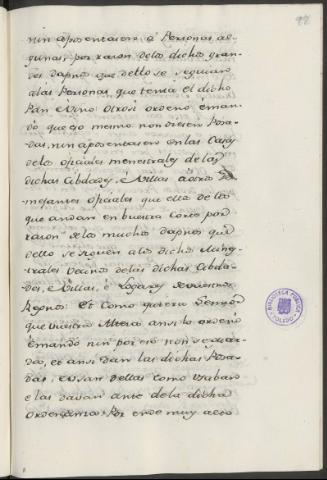 92
nin aposentasen á Personas al-
gunas por razon delos dichos gran-
des daños que dello se seguian
alas Personas que tenia el dicho
Pan é Vino Otrosi ordenó éman-
dó que eso mesmo non diesen Posa-
das nin aposentasen en las Casas
delos oficiales menestrales delas
dichas Cibdades, é Villas é á otros
mejantes oficiales que ellos delos
que andan en buestra Corte por
razon delos muchos daños que
dello se siguen alos dichos Menes-
trales Vecinos delas dichas Cibda-
des, é Villas, é Logares de vuestros
Regnos: Et Como quiera Señor
que vuestra Alteza ansi lo ordenó
émandó nin por eso non se guar-
da, et ansi dan las dichas Posa-
das, é usan dellas como usaban
e las davan ante dela dicha
Ordenanza: Por ende muy alto
BIBLIOTECA PUBLICA
TOLEDO